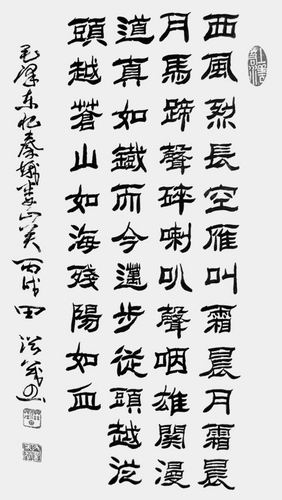 西風烈長空雁叫霜晨月霜晨
月馬蹄聲碎喇叭聲咽雄關漫
道真如鐵而今邁步從頭越從
頭越蒼山如海殘陽如血
毛澤东忆秦娥娄山关 丙戌 田